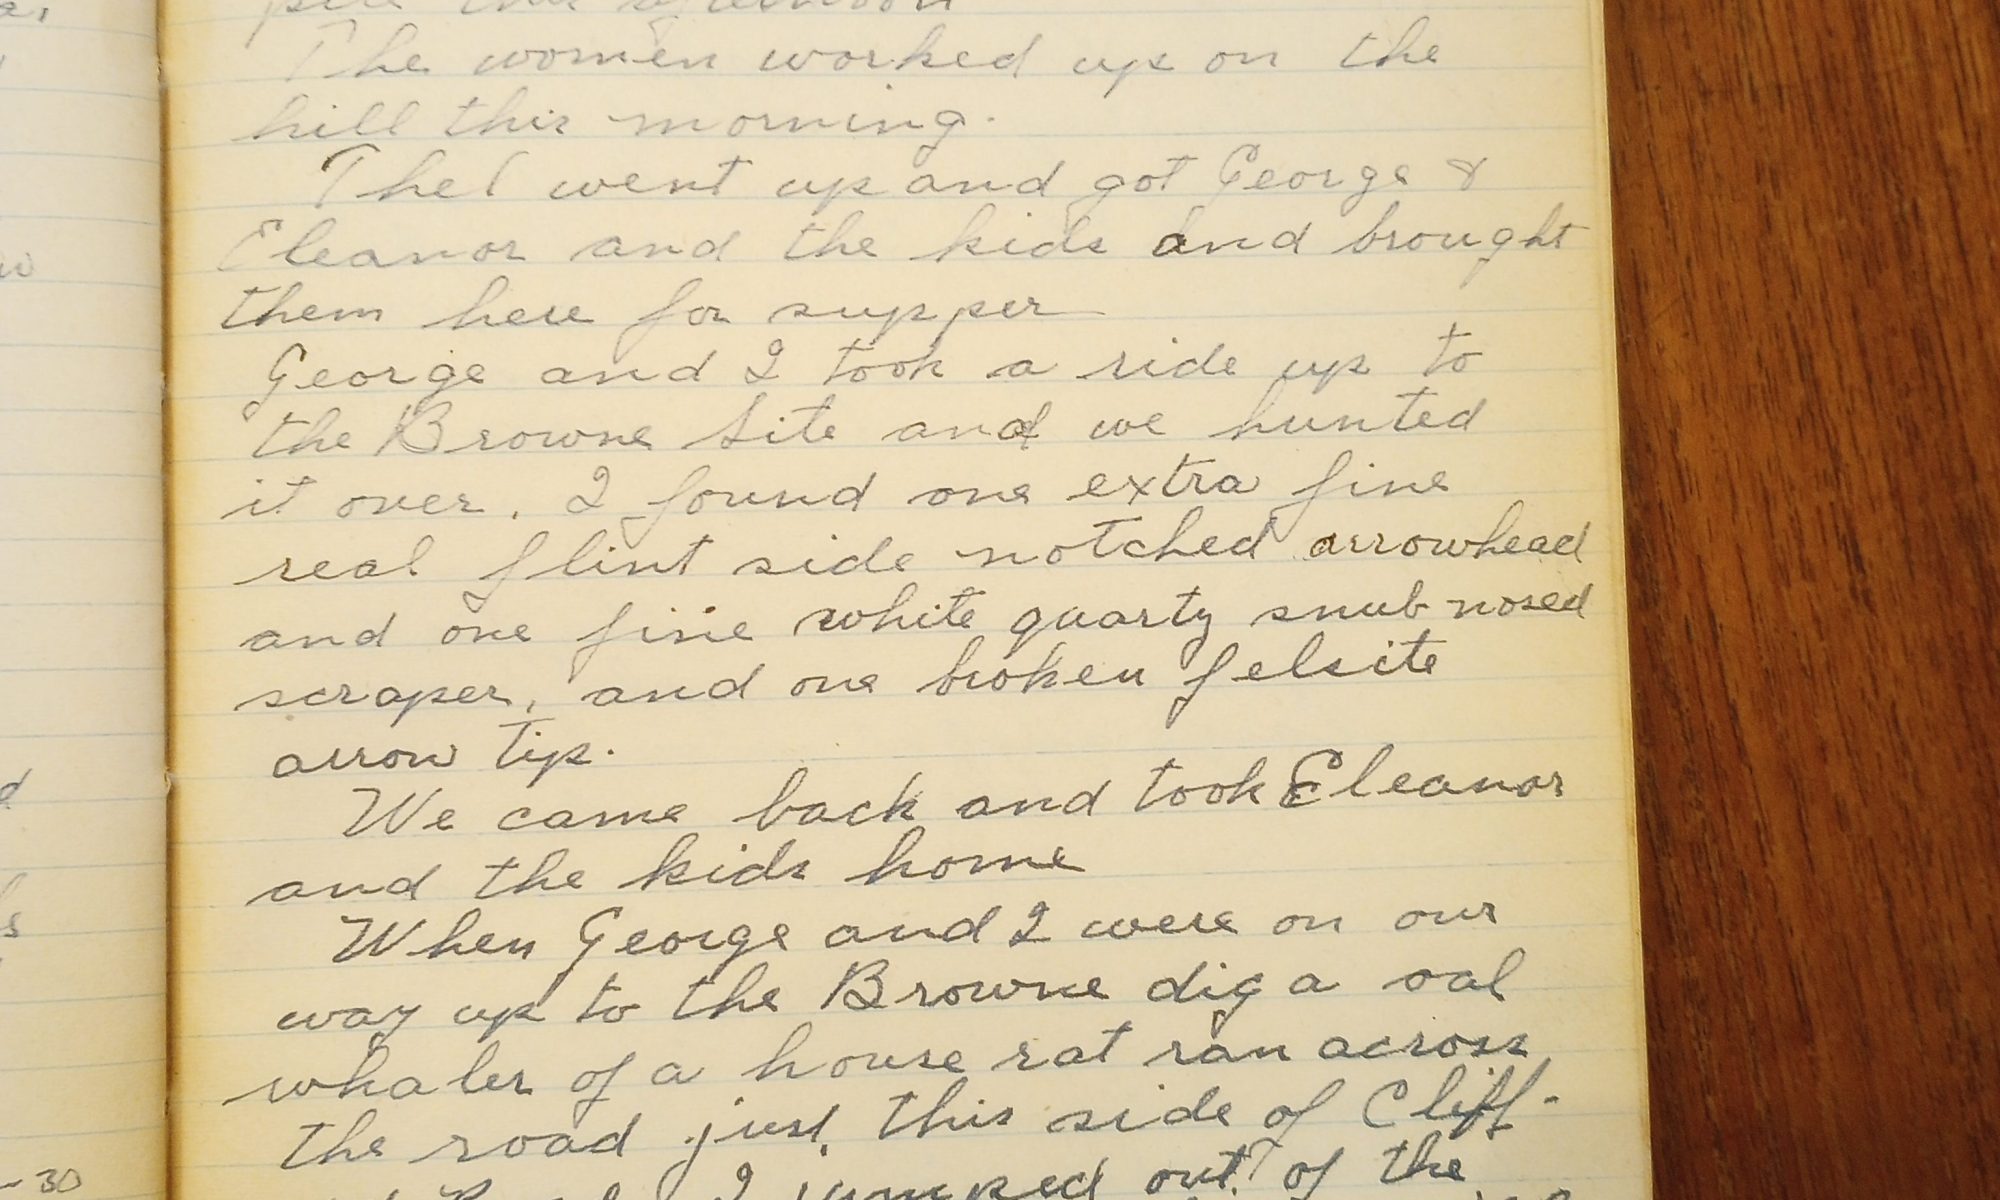 this afternoon
The women worked up on the
hill this morning.
Thel went up and got George &
Eleanor and the kids and brought
them here for supper
George and I took a ride up to
the Browne Site and we hunted
it over. I found one extra fine
real flint side notched arrowhead
and one fine white quartz snub-nosed
scraper, and one broken felsite
arrow tip.
We came back and took Eleanor
and the kids home
When George and I were on our
way up to the Browne dig a oal
whaler of a house rat ran across
the road just this side of Cliff-
I jumped out of the
-30